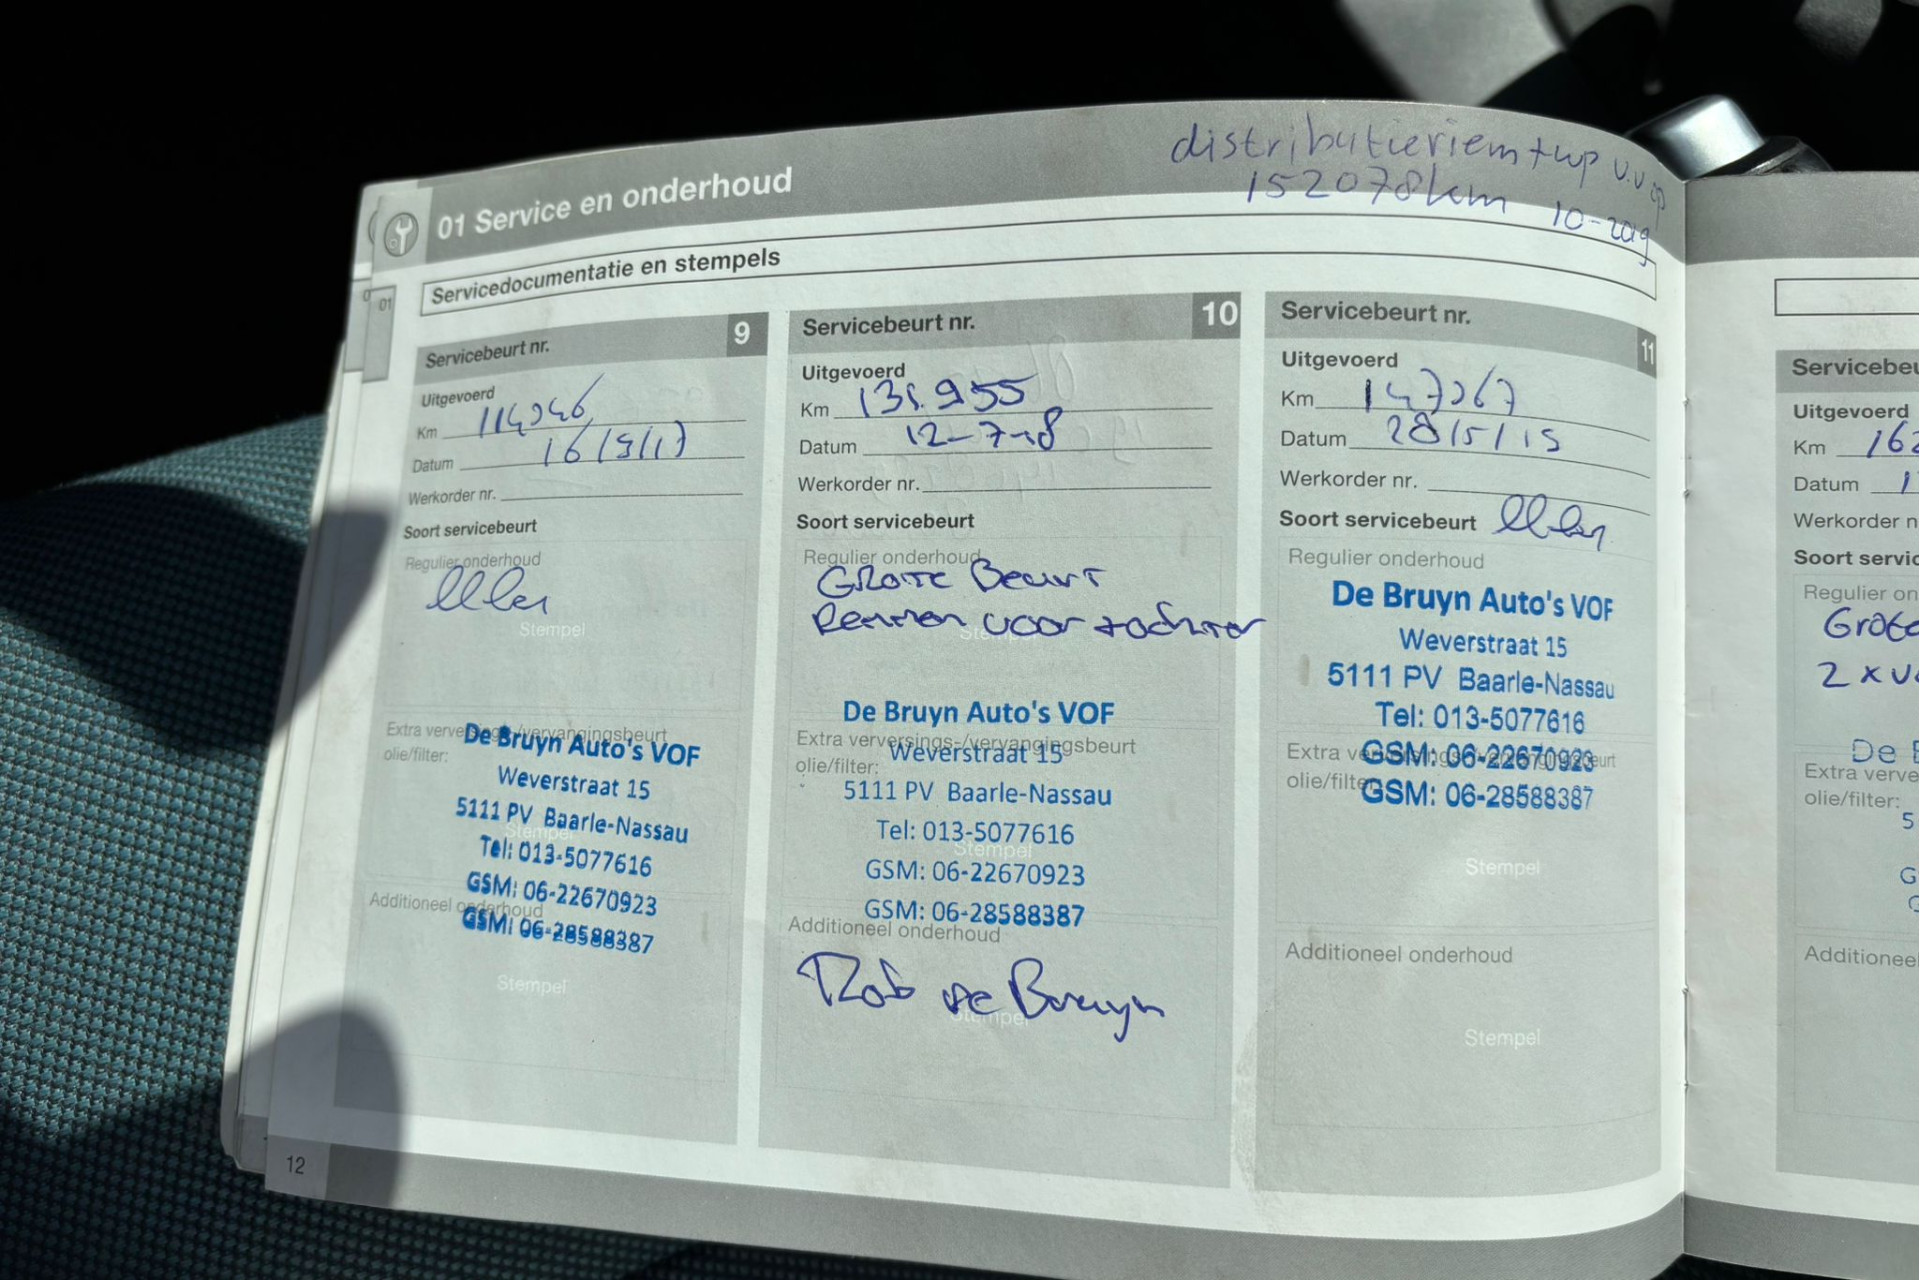 distributieriem + wp v.v op
152078km 10-2019
01 Service en onderhoud
Servicedocumentatie en stempels
01
Servicebeurt nr. 9
Uitgevoerd
Km
Datum 16/3/17
Werkorder nr.
Soort servicebeurt
Regulier onderhoud
Stempel
Extra verversings-/vervangingsbeurt
olie/filter:
De Bruyn Auto's VOF
Weverstraat 15
5111 PV Baarle-Nassau
Stempel
Tel: 013-5077616
GSM: 06-22670923
Additioneel onderhoud
GSM: 06-28588387
Stempel
12
Servicebeurt nr. 10
Uitgevoerd
Km 131.955
Datum 12-7-18
Werkorder nr.
Soort servicebeurt
Regulier onderhoud
Grote Beurt
Remmen voor + achter
Stempel
De Bruyn Auto's VOF
Extra verversings-/vervangingsbeurt
Weverstraat 15
olie/filter:
5111 PV Baarle-Nassau
Tel: 013-5077616
Stempel
GSM: 06-22670923
GSM: 06-28588387
Additioneel onderhoud
Rob de Bruyn
Stempel
Servicebeurt nr. 11
Uitgevoerd
Km 147267
Datum 28/5/15
Werkorder nr.
Soort servicebeurt
Regulier onderhoud
De Bruyn Auto's VOF
Weverstraat 15
5111 PV Baarle-Nassau
Tel: 013-5077616
Extra verversings-/vervangingsbeurt
GSM: 06-22670923
olie/filter:
GSM: 06-28588387
Stempel
Additioneel onderhoud
Stempel
Servicebeu
Uitgevoerd
Km 162
Datum 1
Werkorder n
Soort servic
Regulier on
Grote
2 x v
De B
Extra verve
olie/filter:
5
G
G
Additioneel